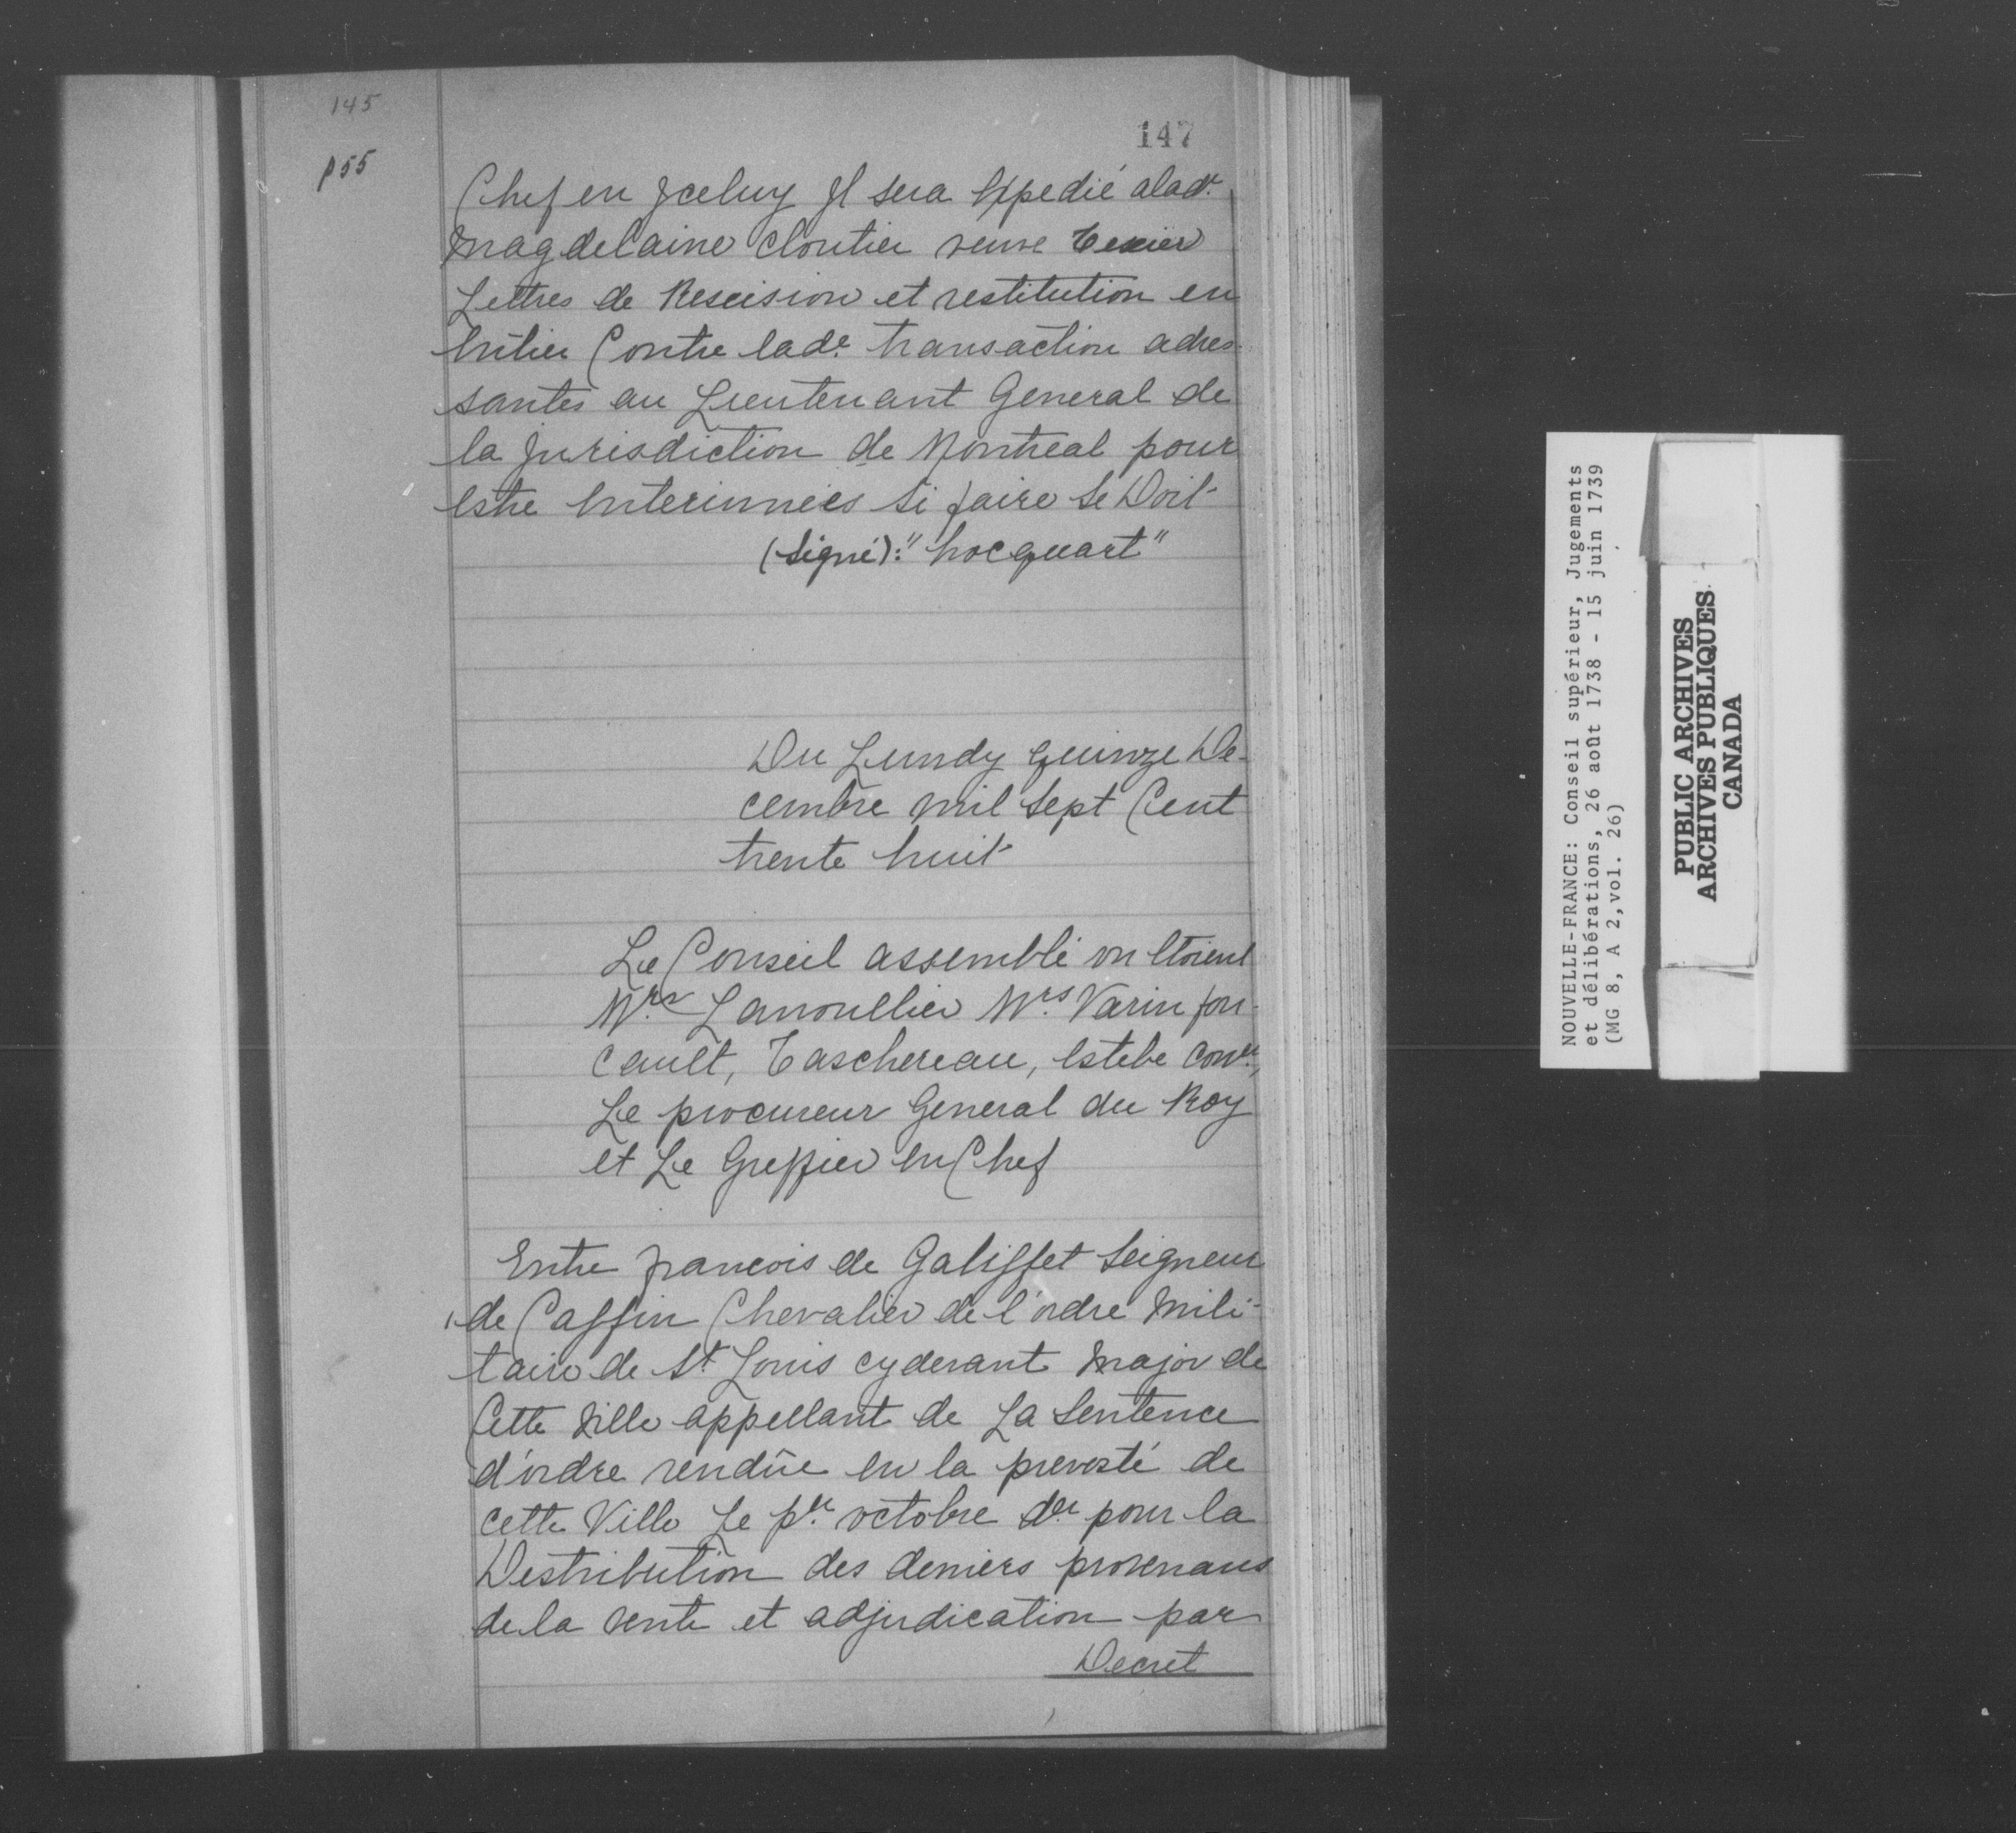 145
147
p55
Chef en Jceluy Jl sera Expedié alade.
Magdelaine Cloutier veuve Texier
Lettres de Rescision et restitution en
Entier Contre lade. transaction adres-
santes au Lieutenant General de
la Jurisdiction de Montreal pour
Estre Enterinnées si faire se Doit
(signé): "hocquart"
Du Lundy quinze De-
cembre mil sept Cent
trente huit
Le Conseil assemblé ou Etoient
Mrs Lanoullier Mrs Varin fou-
cault, Taschereau, Estebe Conrs,
Le procureur General du Roy
et Le Greffier en Chef
Entre francois de Galiffet Seigneur
de Caffin Chevalier de l'ordre Mili-
taire de St Louis cydevant Major de
Cette Ville appellant de La Sentence
d'ordre rendüe en la prevosté de
cette Ville Le pr. octobre der pour la
Distribution des deniers provenans
de la vente et adjudication par
Decret
NOUVELLE-FRANCE: Conseil supérieur, Jugements
et délibérations, 26 août 1738 - 15 juin 1739
(MG 8, A 2, vol. 26)
PUBLIC ARCHIVES
ARCHIVES PUBLIQUES
CANADA